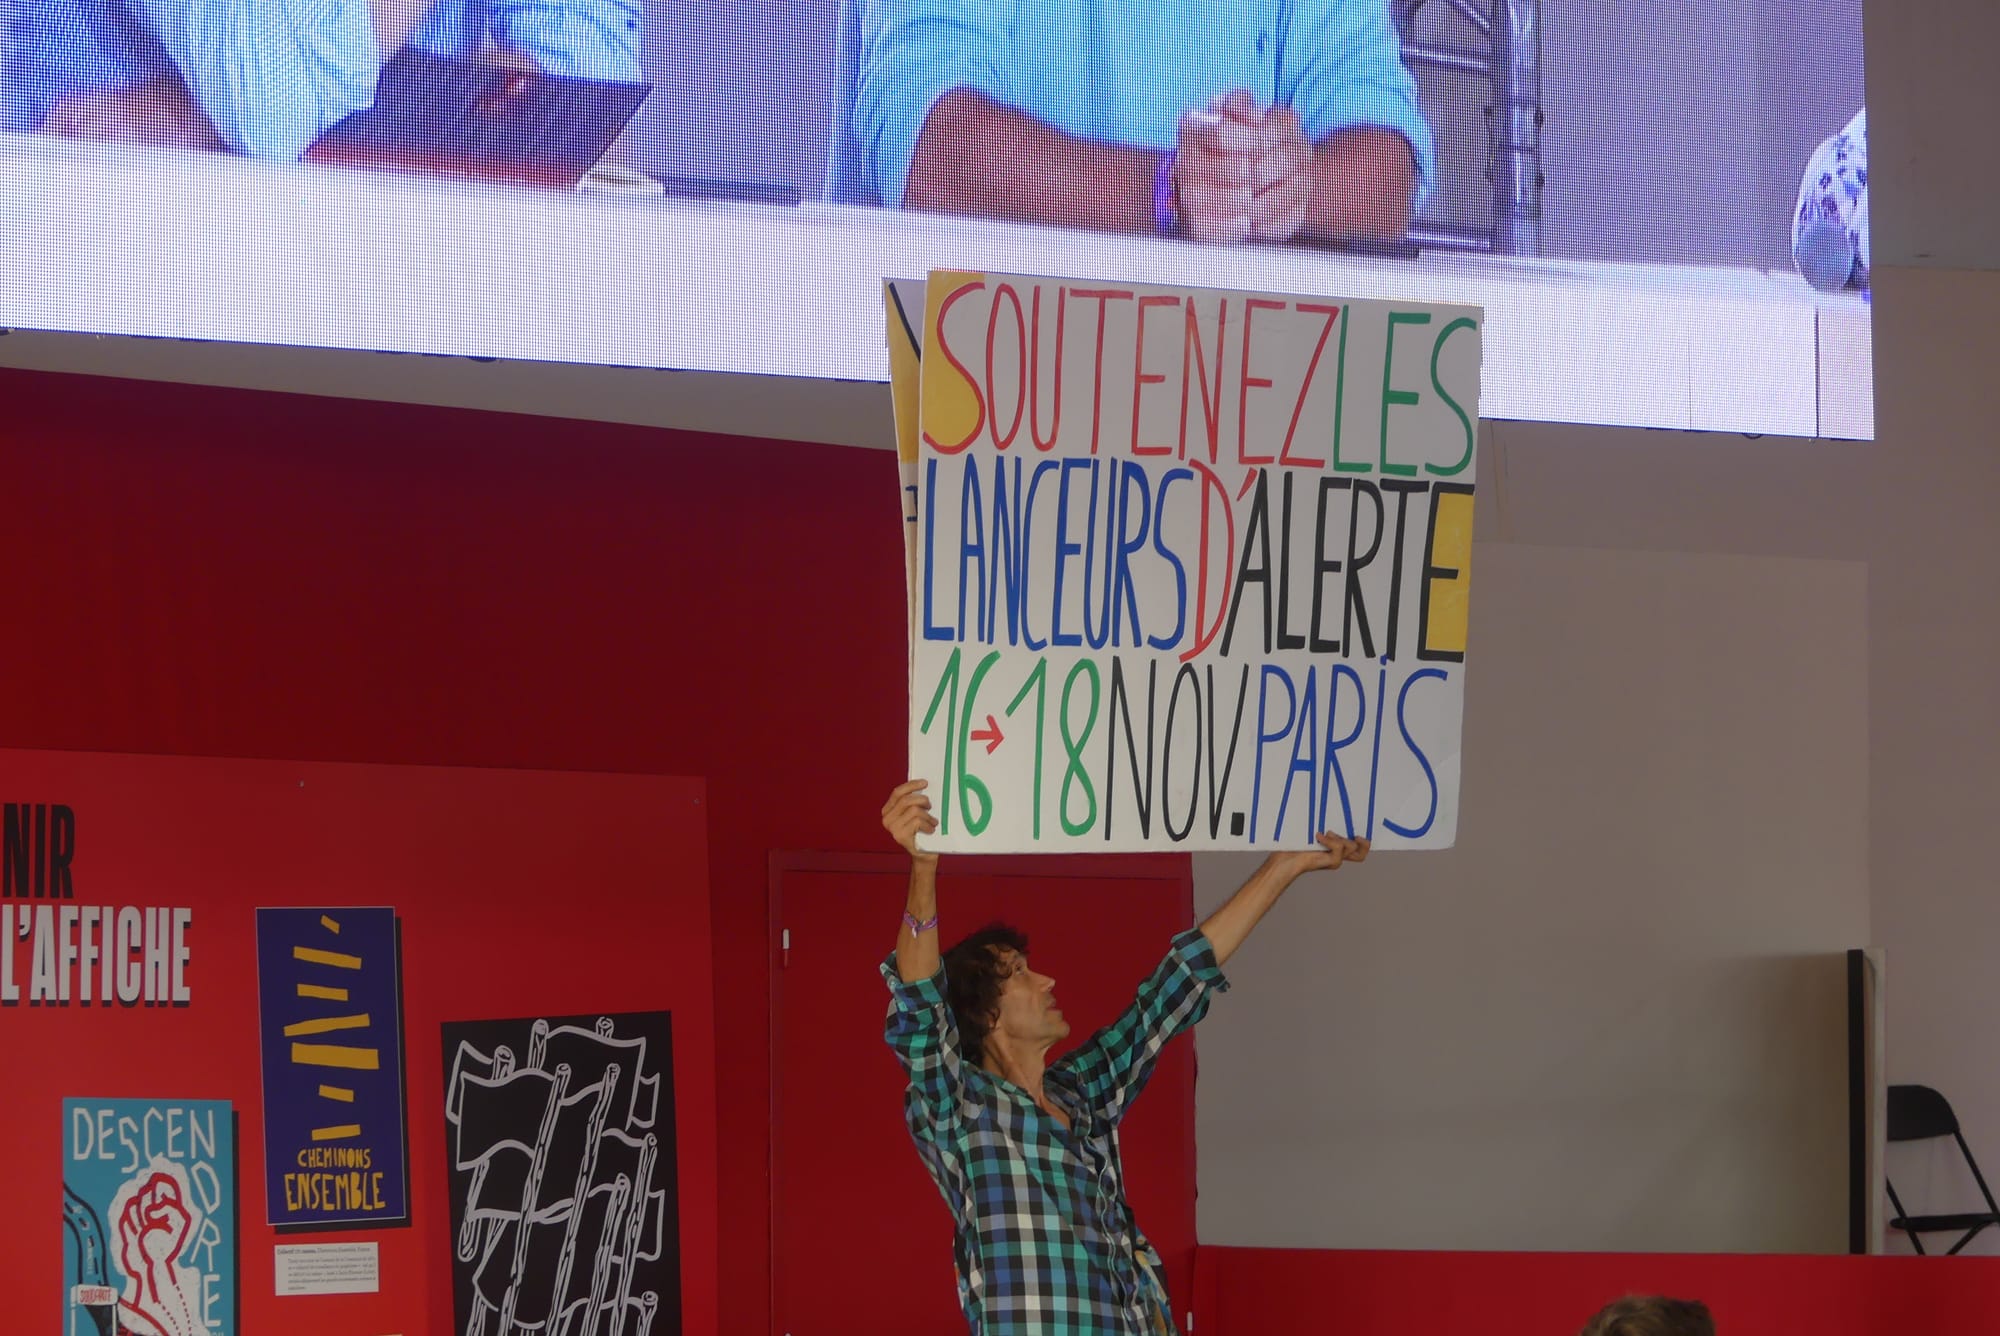 SOUTENEZ LES
LANCEURS D'ALERTE
16→18 NOV. PARiS
NIR
L'AFFICHE
CHEMINONS
ENSEMBLE
DESCEN
DRE
SOLIDARITÉ